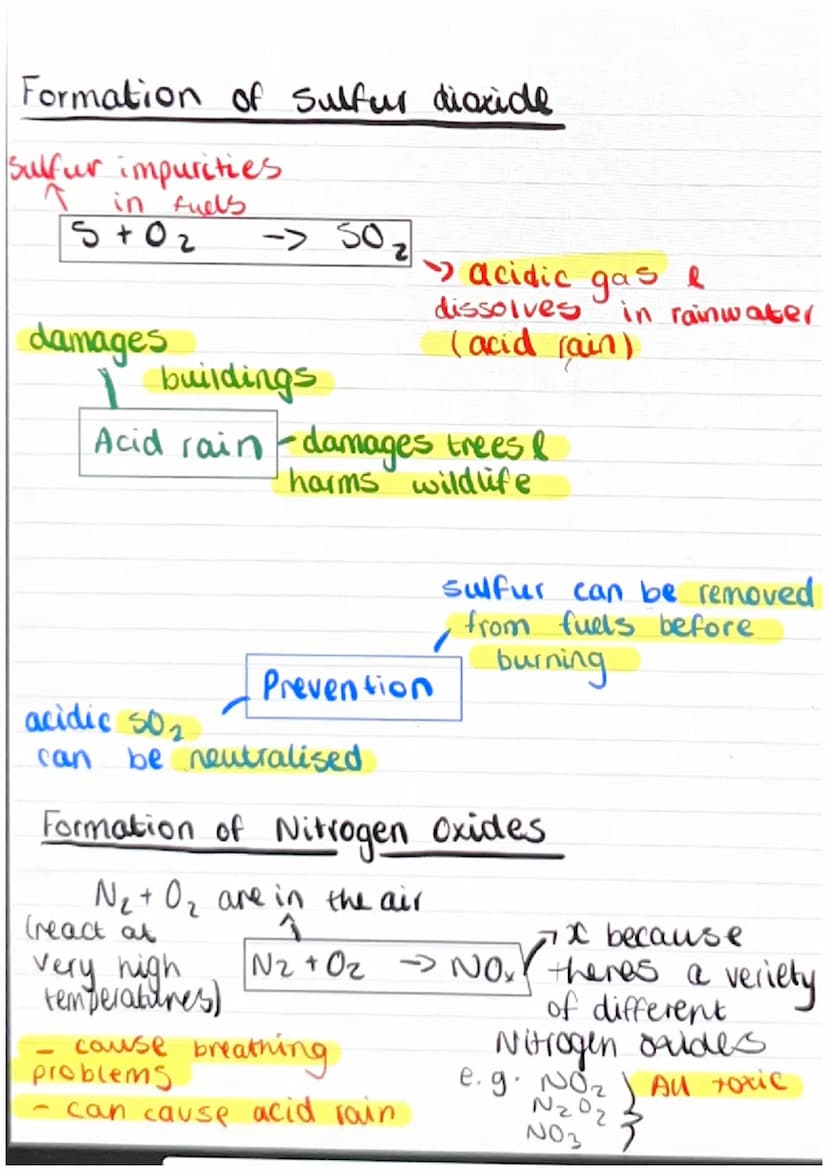 Formation of Sulfur dioxide
sulfur impurities
↑ in fuels
S + O₂ -> SO₂
↘ acidic gas &
dissolves in rainwater
(acid rain)
damages
buildings
Acid rain - damages trees &
harms wildlife
sulfur can be removed
from fuels before
burning
Prevention
acidic SO₂
can be neutralised
Formation of Nitrogen Oxides
N₂ + O₂ are in the air
(react at
very high
temperatures)
N₂ + O₂ -> NOₓ
x because
theres a veriety
of different
Nitrogen oxides
e.g. NO₂
N₂O₂
NO₃
} All toxic
- cause breathing
problems
- can cause acid rain